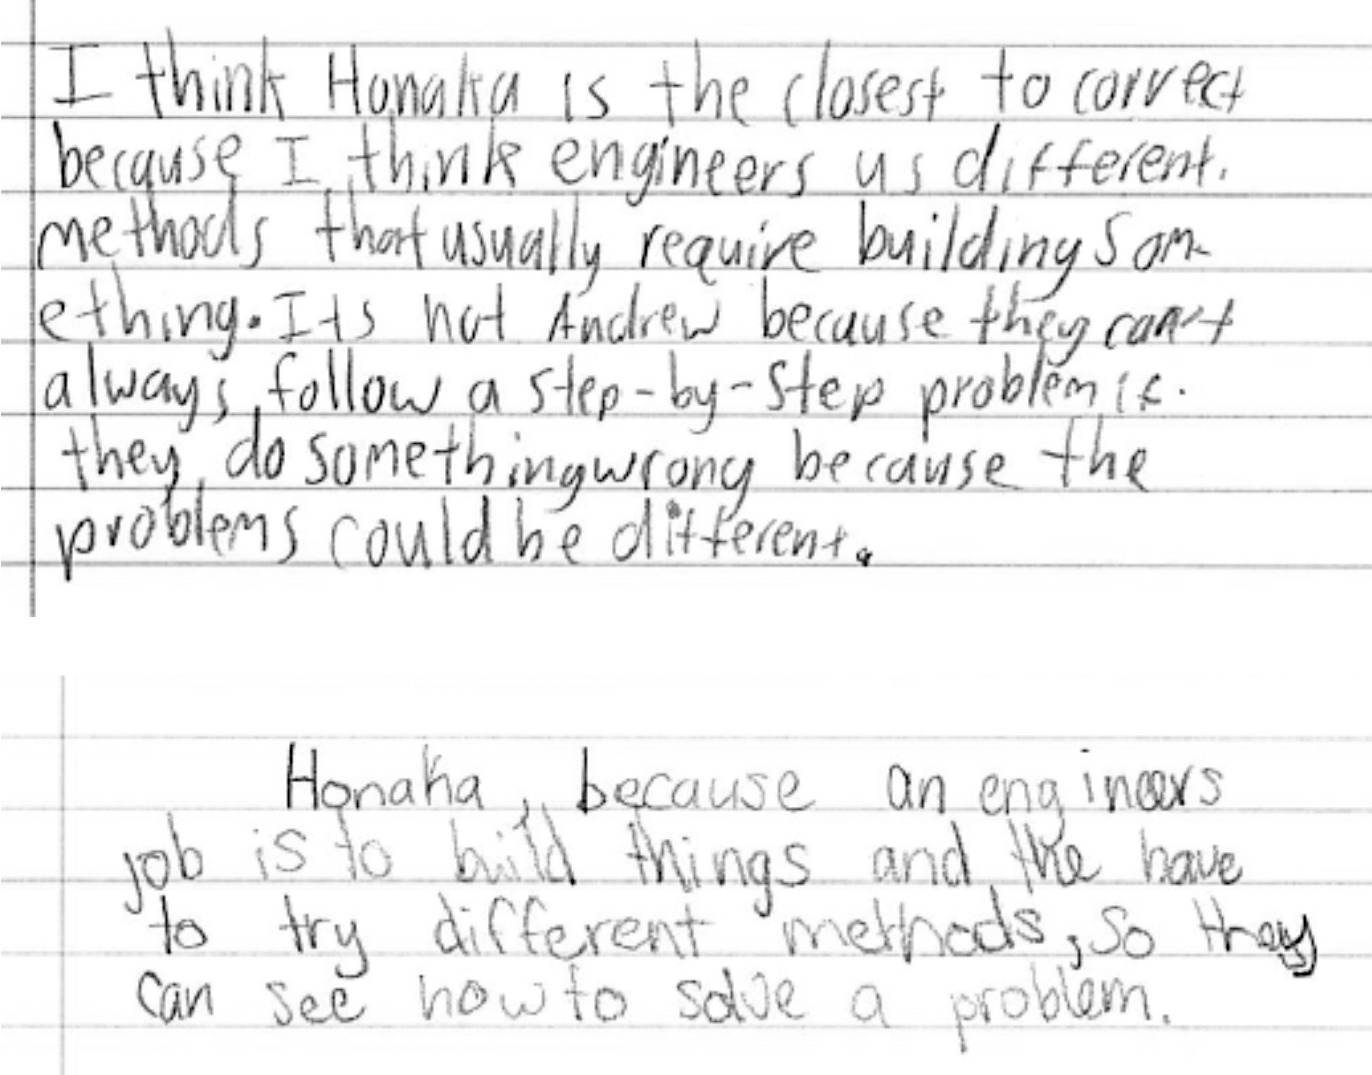 I think Honaka is the closest to correct
because I think engineers us different.
methods that usually require building som-
ething. Its not Andrew because they can't
always follow a step-by-step problem if.
they do something wrong because the
problems could be different.
Honaka, because an engineers
job is to build things and the have
to try different methods, so they
can see how to solve a problem.